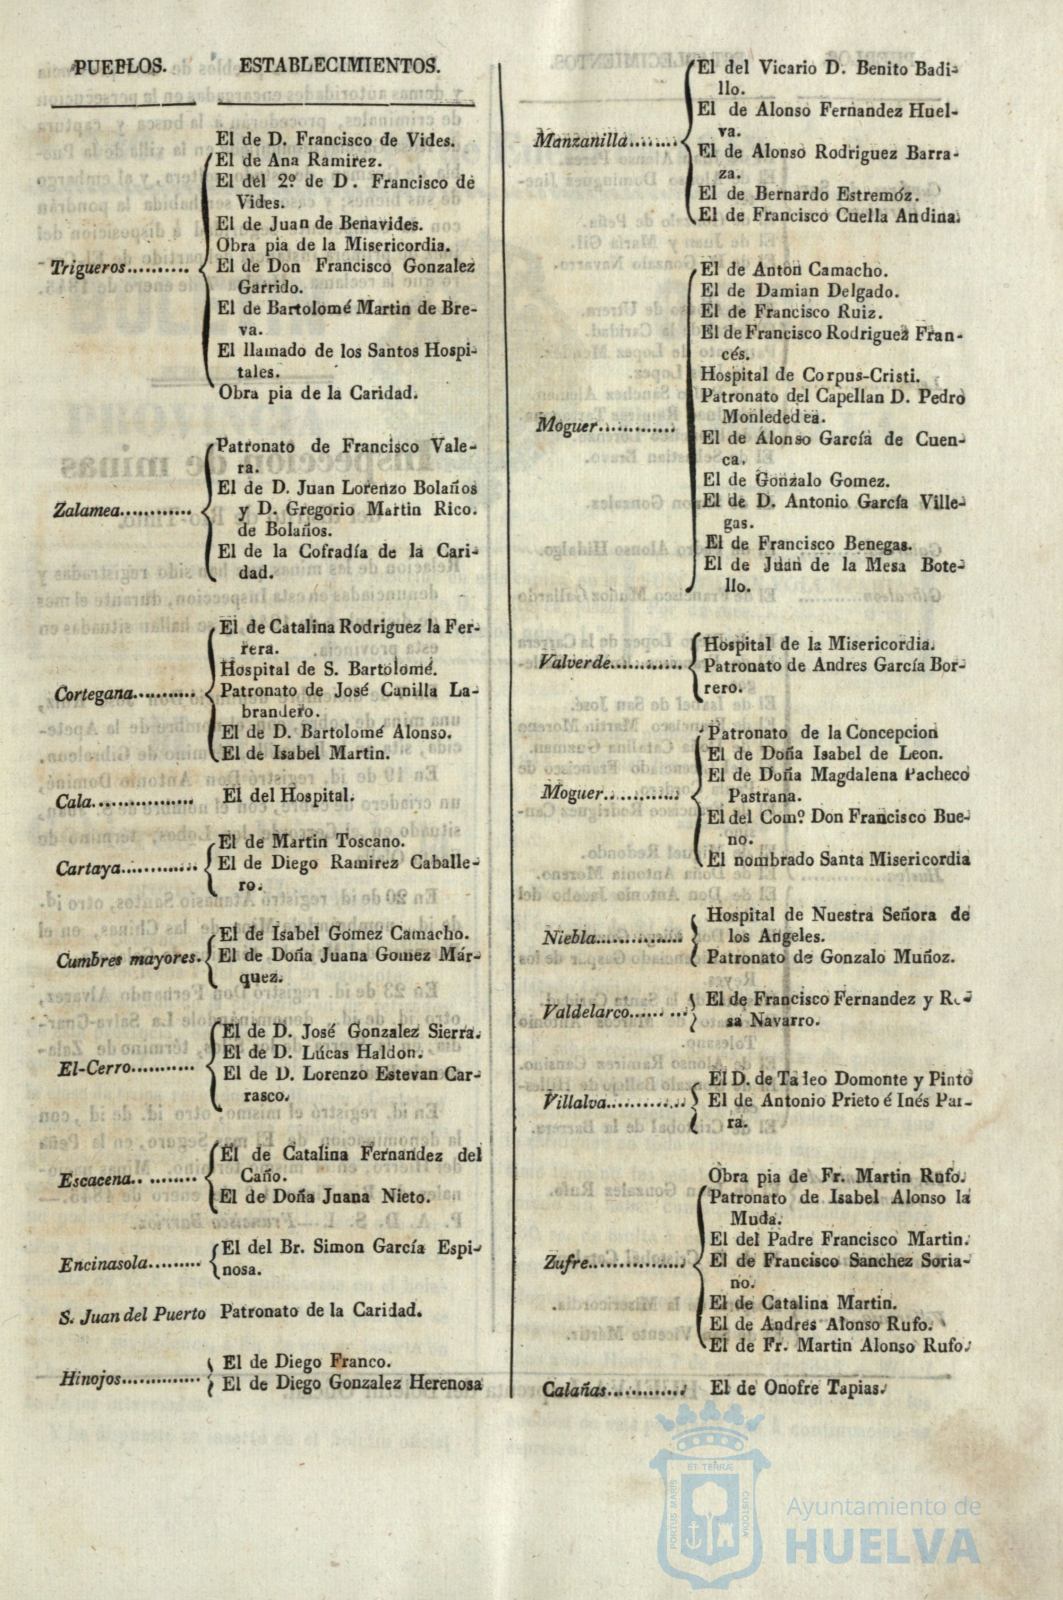 PUEBLOS. ESTABLECIMIENTOS.
El de D. Francisco de Vides.
El de Ana Ramirez.
El del 2º de D. Francisco de
Vides.
El de Juan de Benavides.
Obra pia de la Misericordia.
Trigueros.......... El de Don Francisco Gonzalez
Garrido.
El de Bartolomé Martin de Bre-
va.
El llamado de los Santos Hospi-
tales.
Obra pia de la Caridad.
Patronato de Francisco Vale-
ra.
El de D. Juan Lorenzo Bolaños
Zalamea............ y D. Gregorio Martin Rico.
de Bolaños.
El de la Cofradía de la Cari-
dad.
El de Catalina Rodriguez la Fer-
rera.
Hospital de S. Bartolomé.
Cortegana........... Patronato de José Canilla La-
brandero.
El de D. Bartolomé Alonso.
El de Isabel Martin.
Cala................ El del Hospital.
El de Martin Toscano.
Cartaya............. El de Diego Ramirez Caballe-
ro.
El de Isabel Gomez Camacho.
Cumbres mayores. El de Doña Juana Gomez Már-
quez.
El de D. José Gonzalez Sierra.
El de D. Lúcas Haldon.
El-Cerro........... El de D. Lorenzo Estevan Car-
rasco.
El de Catalina Fernandez del
Escacena.. ........ Caño.
El de Doña Juana Nieto.
El del Br. Simon García Espi-
Encinasola......... nosa.
S. Juan del Puerto Patronato de la Caridad.
El de Diego Franco.
Hinojos............. El de Diego Gonzalez Herenosa
El del Vicario D. Benito Badi-
llo.
El de Alonso Fernandez Huel-
Manzanilla........ va.
El de Alonso Rodriguez Barra-
za.
El de Bernardo Estremóz.
El de Francisco Cuella Andina.
El de Anton Camacho.
El de Damian Delgado.
El de Francisco Ruiz.
El de Francisco Rodriguez Fran-
cés.
Hospital de Corpus-Cristi.
Patronato del Capellan D. Pedro
Moguer............ Monlededea.
El de Alonso García de Cuen-
ca.
El de Gonzalo Gomez.
El de D. Antonio García Ville-
gas.
El de Francisco Benegas.
El de Juan de la Mesa Bote-
llo.
Hospital de la Misericordia.
Valverde............ Patronato de Andres García Bor-
rero.
Patronato de la Concepcion
El de Doña Isabel de Leon.
El de Doña Magdalena Pacheco
Moguer............ Pastrana.
El del Comº Don Francisco Bue-
no.
El nombrado Santa Misericordia
Hospital de Nuestra Señora de
Niebla.............. los Angeles.
Patronato de Gonzalo Muñoz.
El de Francisco Fernandez y Ro-
Valdelarco...... ... sa Navarro.
El D. de Tadeo Domonte y Pinto
Villalva............. El de Antonio Prieto é Inés Par-
ra.
Obra pia de Fr. Martin Rufo.
Patronato de Isabel Alonso la
Muda.
El del Padre Francisco Martin.
Zufre............... El de Francisco Sanchez Soria-
no.
El de Catalina Martin.
El de Andres Alonso Rufo.
El de Fr. Martin Alonso Rufo.
Calañas............ El de Onofre Tapias.
PORTUS MARIS ET TERRÆ CUSTODIA
Ayuntamiento de
HUELVA